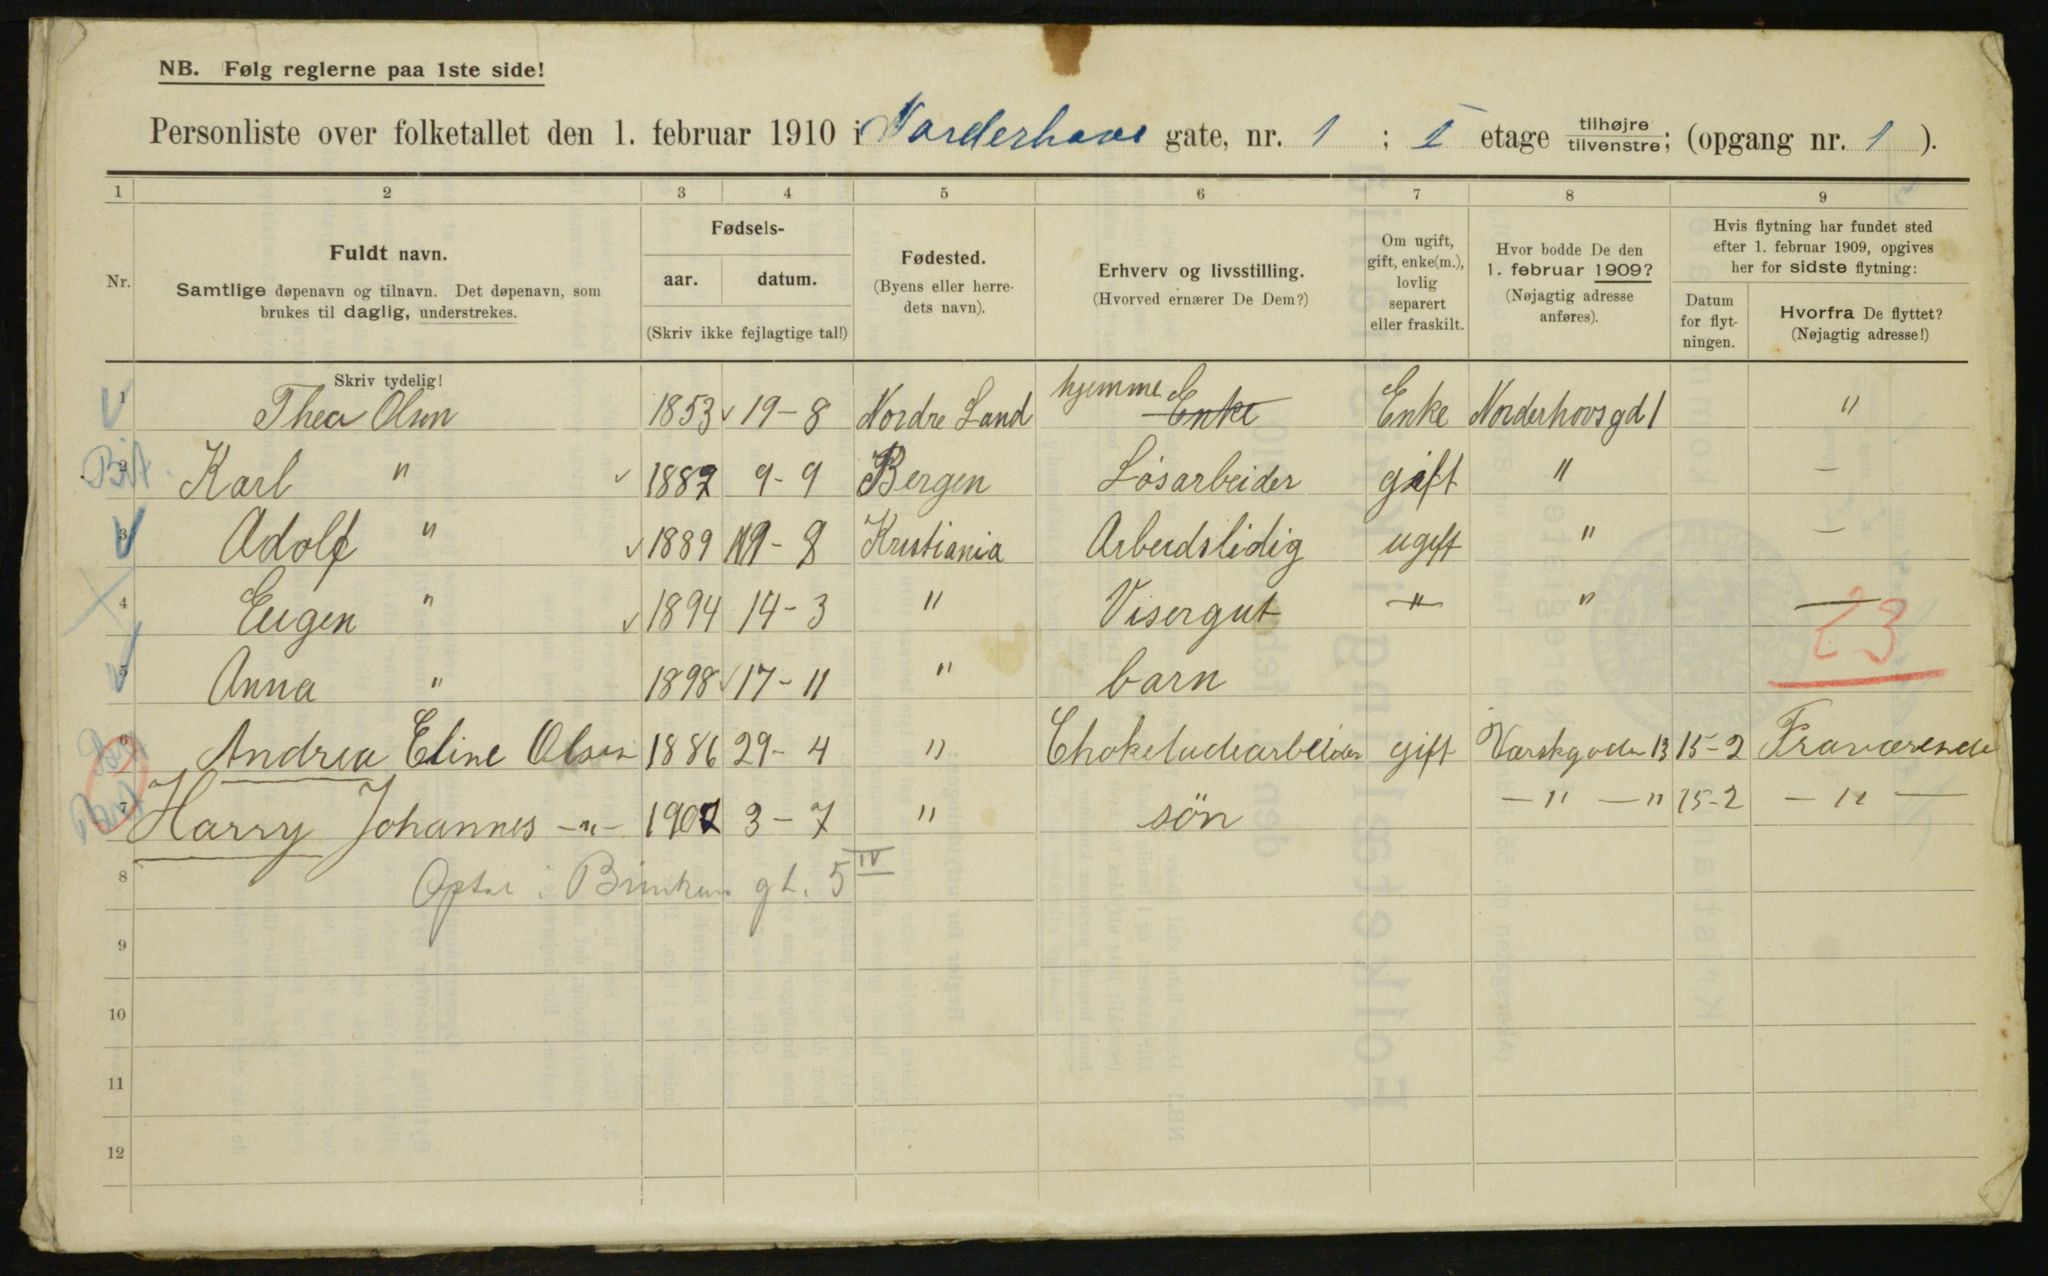 NB. Følg reglerne paa 1ste side!
Personliste over folketallet den 1. februar 1910 i Norderhovs gate, nr. 1 ; I etage tilhøjre tilvenstre; (opgang nr. 1 ).
1 2 3 4 5 6 7 8 9
Nr.
Fuldt navn.
Samtlige døpenavn og tilnavn. Det døpenavn, som
brukes til daglig, understrekes.
Skriv tydelig!
Fødsels-
aar. datum.
(Skriv ikke fejlagtige tal!)
Fødested.
(Byens eller herre-
dets navn).
Erhverv og livsstilling.
(Hvorved ernærer De Dem?)
Om ugift,
gift, enke(m.),
lovlig
separert
eller fraskilt.
Hvor bodde De den
1. februar 1909?
(Nøjagtig adresse
anføres).
Hvis flytning har fundet sted
efter 1. februar 1909, opgives
her for sidste flytning:
Datum
for flyt-
ningen.
Hvorfra De flyttet?
(Nøjagtig adresse!)
1 Thea Olsen 1853 19-8 Nordre Land hjemme Enke Enke Norderhovsgd 1 "
2 Karl " 1882 9-9 Bergen Løsarbeider gift " –
3 Adolf " 1889 19-8 Kristiania Arbeidsledig ugift " –
4 Eugen " 1894 14-3 " Visergut " " —
23
5 Anna " 1898 17-11 " barn
6 Andrea Eline Olsen 1886 29-4 " Chokeladearbeider gift 13 15-2 Fraværende
7 Harry Johannes -"- 1907 3-7 " søn -"- -" 15-2 -"-
8 i gt. 5 IV
9
10
11
12